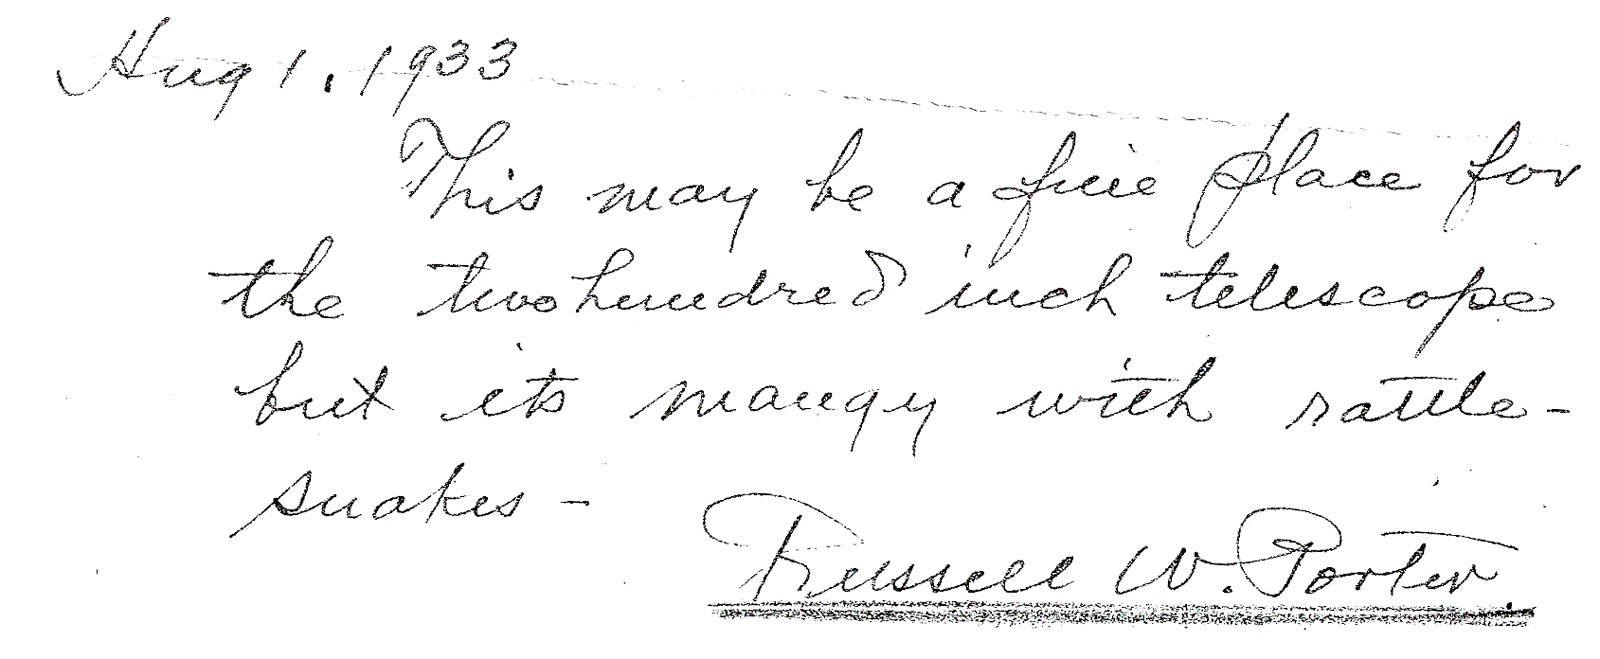 Aug 1, 1933
This may be a fine place for
the two hundred inch telescope
but its mangy with rattle-
snakes -
Russell W. Porter.